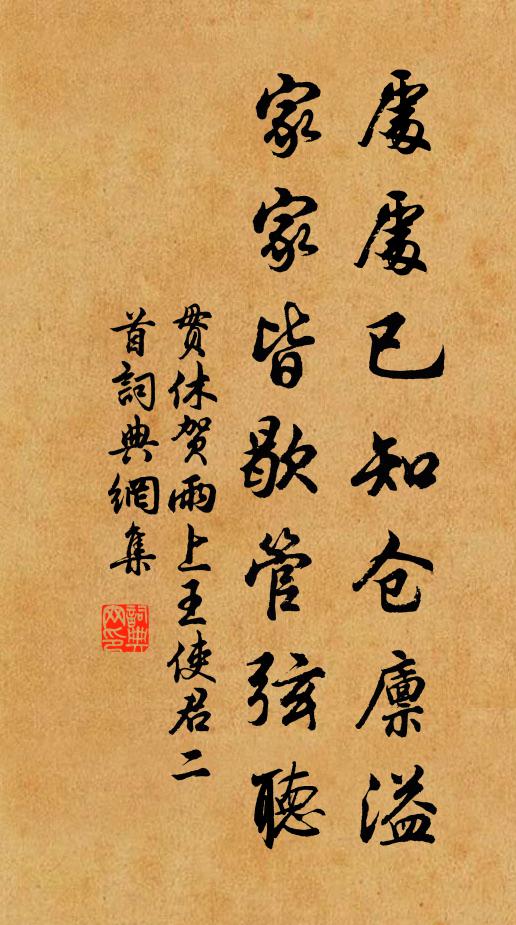 處處已知仓廪溢
家家皆歇管弦聽
贯休贺雨上王使君二
首詞典網集
詞典
网印